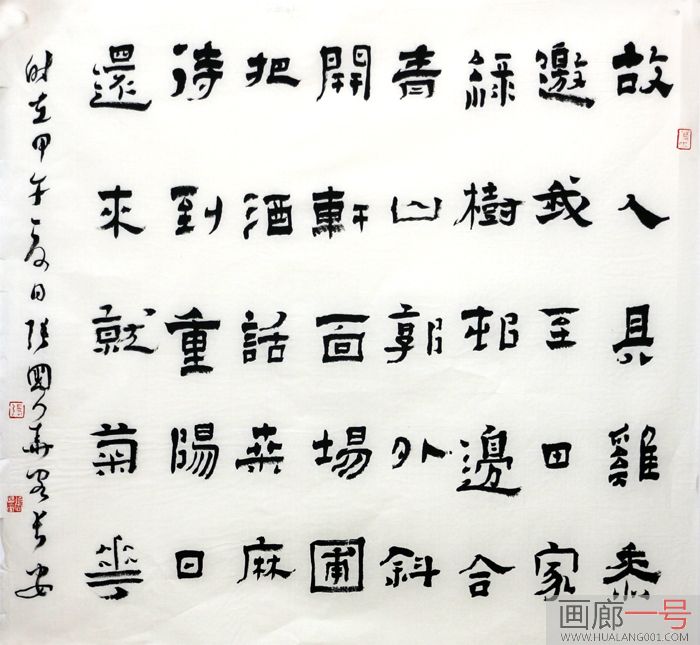 故人具雞黍
邀我至田家
綠樹邨邊合
青山郭外斜
開軒面場圃
把酒話桑麻
待到重陽日
還來就菊華
時在甲午夏日張國華客長安
画廊一号
WWW.HUALANG001.COM